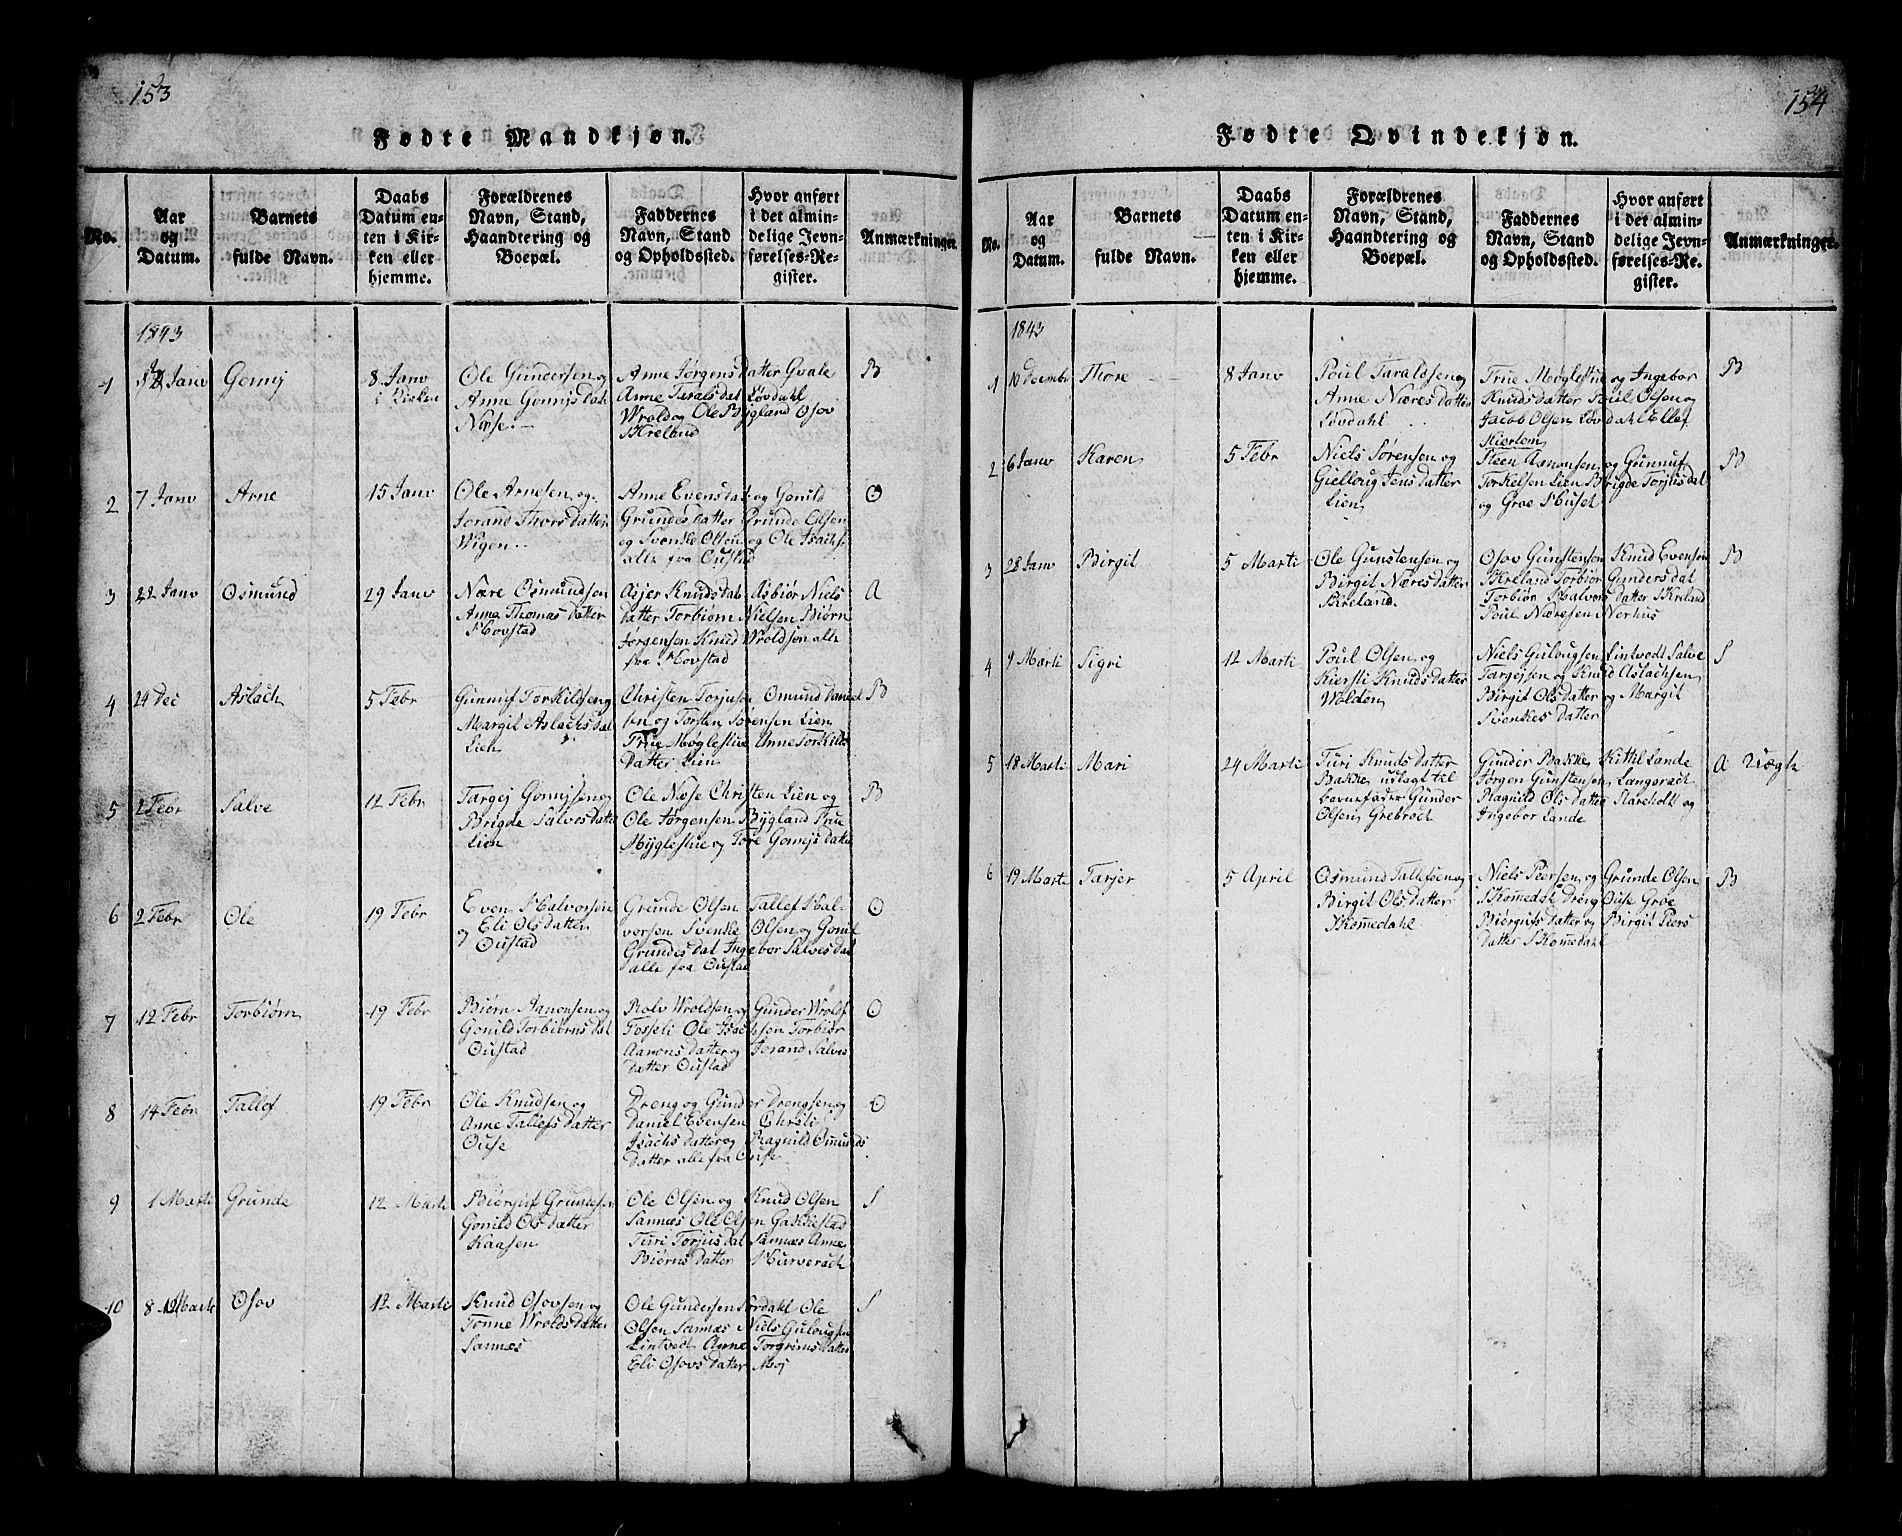 153
Fødte Mandkjøn.
No.
Aar og Datum.
Barnets fulde Navn.
Daabs Datum enten i Kirken eller hjemme.
Forældrenes Navn, Stand, Haandtering og Boepæl.
Faddernes Navn, Stand og Opholdssted.
Hvor anført i det almindelige Jevnførelses-Register.
Anmærkninger.
1843
1
Janv
Gonnij
8 Janv
i Kirken
Ole Gundersen og
Anne Gonnijs dat
Næse.
Anne Jørgensdatter Gvale
Anne Taralsdat Løvdahl
Wrold og Ole Bygland Osov
Skreland
B
2
7 Janv
Arne
15 Janv
Ole Arnesen og
Jorand Thorsdatter
Wigen
Anne Evensdat og Gonild
Grundesdatter Grunde Olsen
og Svenke Olsen og Ole Isachs.
alle fra Oustad
O
3
22 Janv
Osmund
29 Janv
Nære Osmundsen
Anne Thomasdatter
Hovstad
Asjer Knudsdat Asbiør Niels
datter Torbiørn Nielsen Biørn
Jørgensen Knud Wroldsen alle
fra Hovstad
A
4
24 Dec
Aslach
5 Febr
Gunnuf Torkildsen og
Margit Aslachsdat
Lien
Christen Torjusen Omund Daniel
sen og Torsten Sørensen Lien
True Møglestue Anne Torkilds
datter Lien
B
5
2 Febr
Salve
12 Febr
Targej Gonnijsen og
Brigde Salvesdatter
Lien
Ole Næse Christen Lien og
Ole Jørgensen Bygland True
Myglestue og Tore Gonnijsdatter
B
6
2 Febr
Ole
19 Febr
Even Halvorsen
og Eli Olsdatter
Oustad
Grunde Olsen Tallef Hal-
vorsen Svenke Olsen og Gonil
Grundesdat Ingebor Salvesdat
alle fra Oustad
O
7
12 Febr
Torbiørn
19 Febr
Biørn Aanonsen og
Gonild Torbiørnsdat
Oustad
Rolv Wroldsen og Gunder Wrolds
Fosseli Ole Isachsen Torbiør
Aanonsdatter og Jorand Salves
datter Oustad
O
8
14 Febr
Tallef
19 Febr
Ole Knudsen og
Anne Tallefsdatter
Ouse
Dreng og Gunder Drengsen og
Daniel Evensen Christi
Isachsdatter og Ragnild Omunds
datter alle fra Ouse
O
9
1 Marti
Grunde
12 Marti
Biørguf Grundesen
Gonild Olsdatter
Kaasen
Ole Olsen og Knud Olsen
Sannæs Ole Olsen Gakkestad
Turi Torjusdat Sannæs Anne
Biørnsdatter Hurverach
S
10
8 Marti
Osov
12 Marti
Knud Osovsen og
Tonne Wroldsdatter
Sannæs
Ole Gundersen Sordahl Ole
Olsen Sannæs Niels Gulougsen
Lintvedt Anne Torgrimsdatter
Eli Osovsdatter Moj
S
154
Fødte Qvindekjøn.
No.
Aar og Datum.
Barnets fulde Navn.
Daabs Datum enten i Kirken eller hjemme.
Forældrenes Navn, Stand, Haandtering og Boepæl.
Faddernes Navn, Stand og Opholdssted.
Hvor anført i det almindelige Jevnførelses-Register.
Anmærkninger.
1843
1
10 Decembr
Thore
8 Janv
Poul Taraldsen og
Anne Næresdatter
Løvdahl
True Møglestue og Ingebor
Knudsdatter Poul Olsen og
Jacob Olsen Løvdahl Ellef
B
2
6 Janv
Karen
5 Febr
Niels Sørensen og
Gielloug Jensdatter
Lien
Steen Aanonsen og Gunnuf
Torkelsen Lien Brigde Torjusdat
og Groe Huset
B
3
28 Janv
Birgit
5 Marti
Ole Gunstensen og
Birgit Næresdatter
Skreland
Osov Gunstensen Knud Evensen
Skreland Torbiør Gundersdat
Torbiør Halvorsdatter Skreland
Poul Næresen Norhus
B
4
9 Marti
Sigri
12 Marti
Poul Olsen og
Kiersti Knudsdatter
Wolden
Niels Gulougsen Lintvedt Salve
Targejsen og Knud Aslachsen
Birgit Olsdatter og Margit
Svenkesdatter
S
5
18 Marti
Mari
24 Marti
Turi Knudsdatter
Bakke udlagt til
barnefader Gunder
Olsen Grebroch
Gunder Bakke Kittil Lande
Jørgen Gunstensen Langerach
Ragnild Olsdatter Stareholt og
Ingebor Lande
A
Uægte
6
19 Marti
Tarjer
5 April
Osmund Tallefsen og
Birgit Olsdatter
Skomedahl
Niels Peersen og Grunde Olsen
Skomedal Dreng Ouse Groe
Biørgufsdatter og Birgit Peers
datter Skomedahl
B